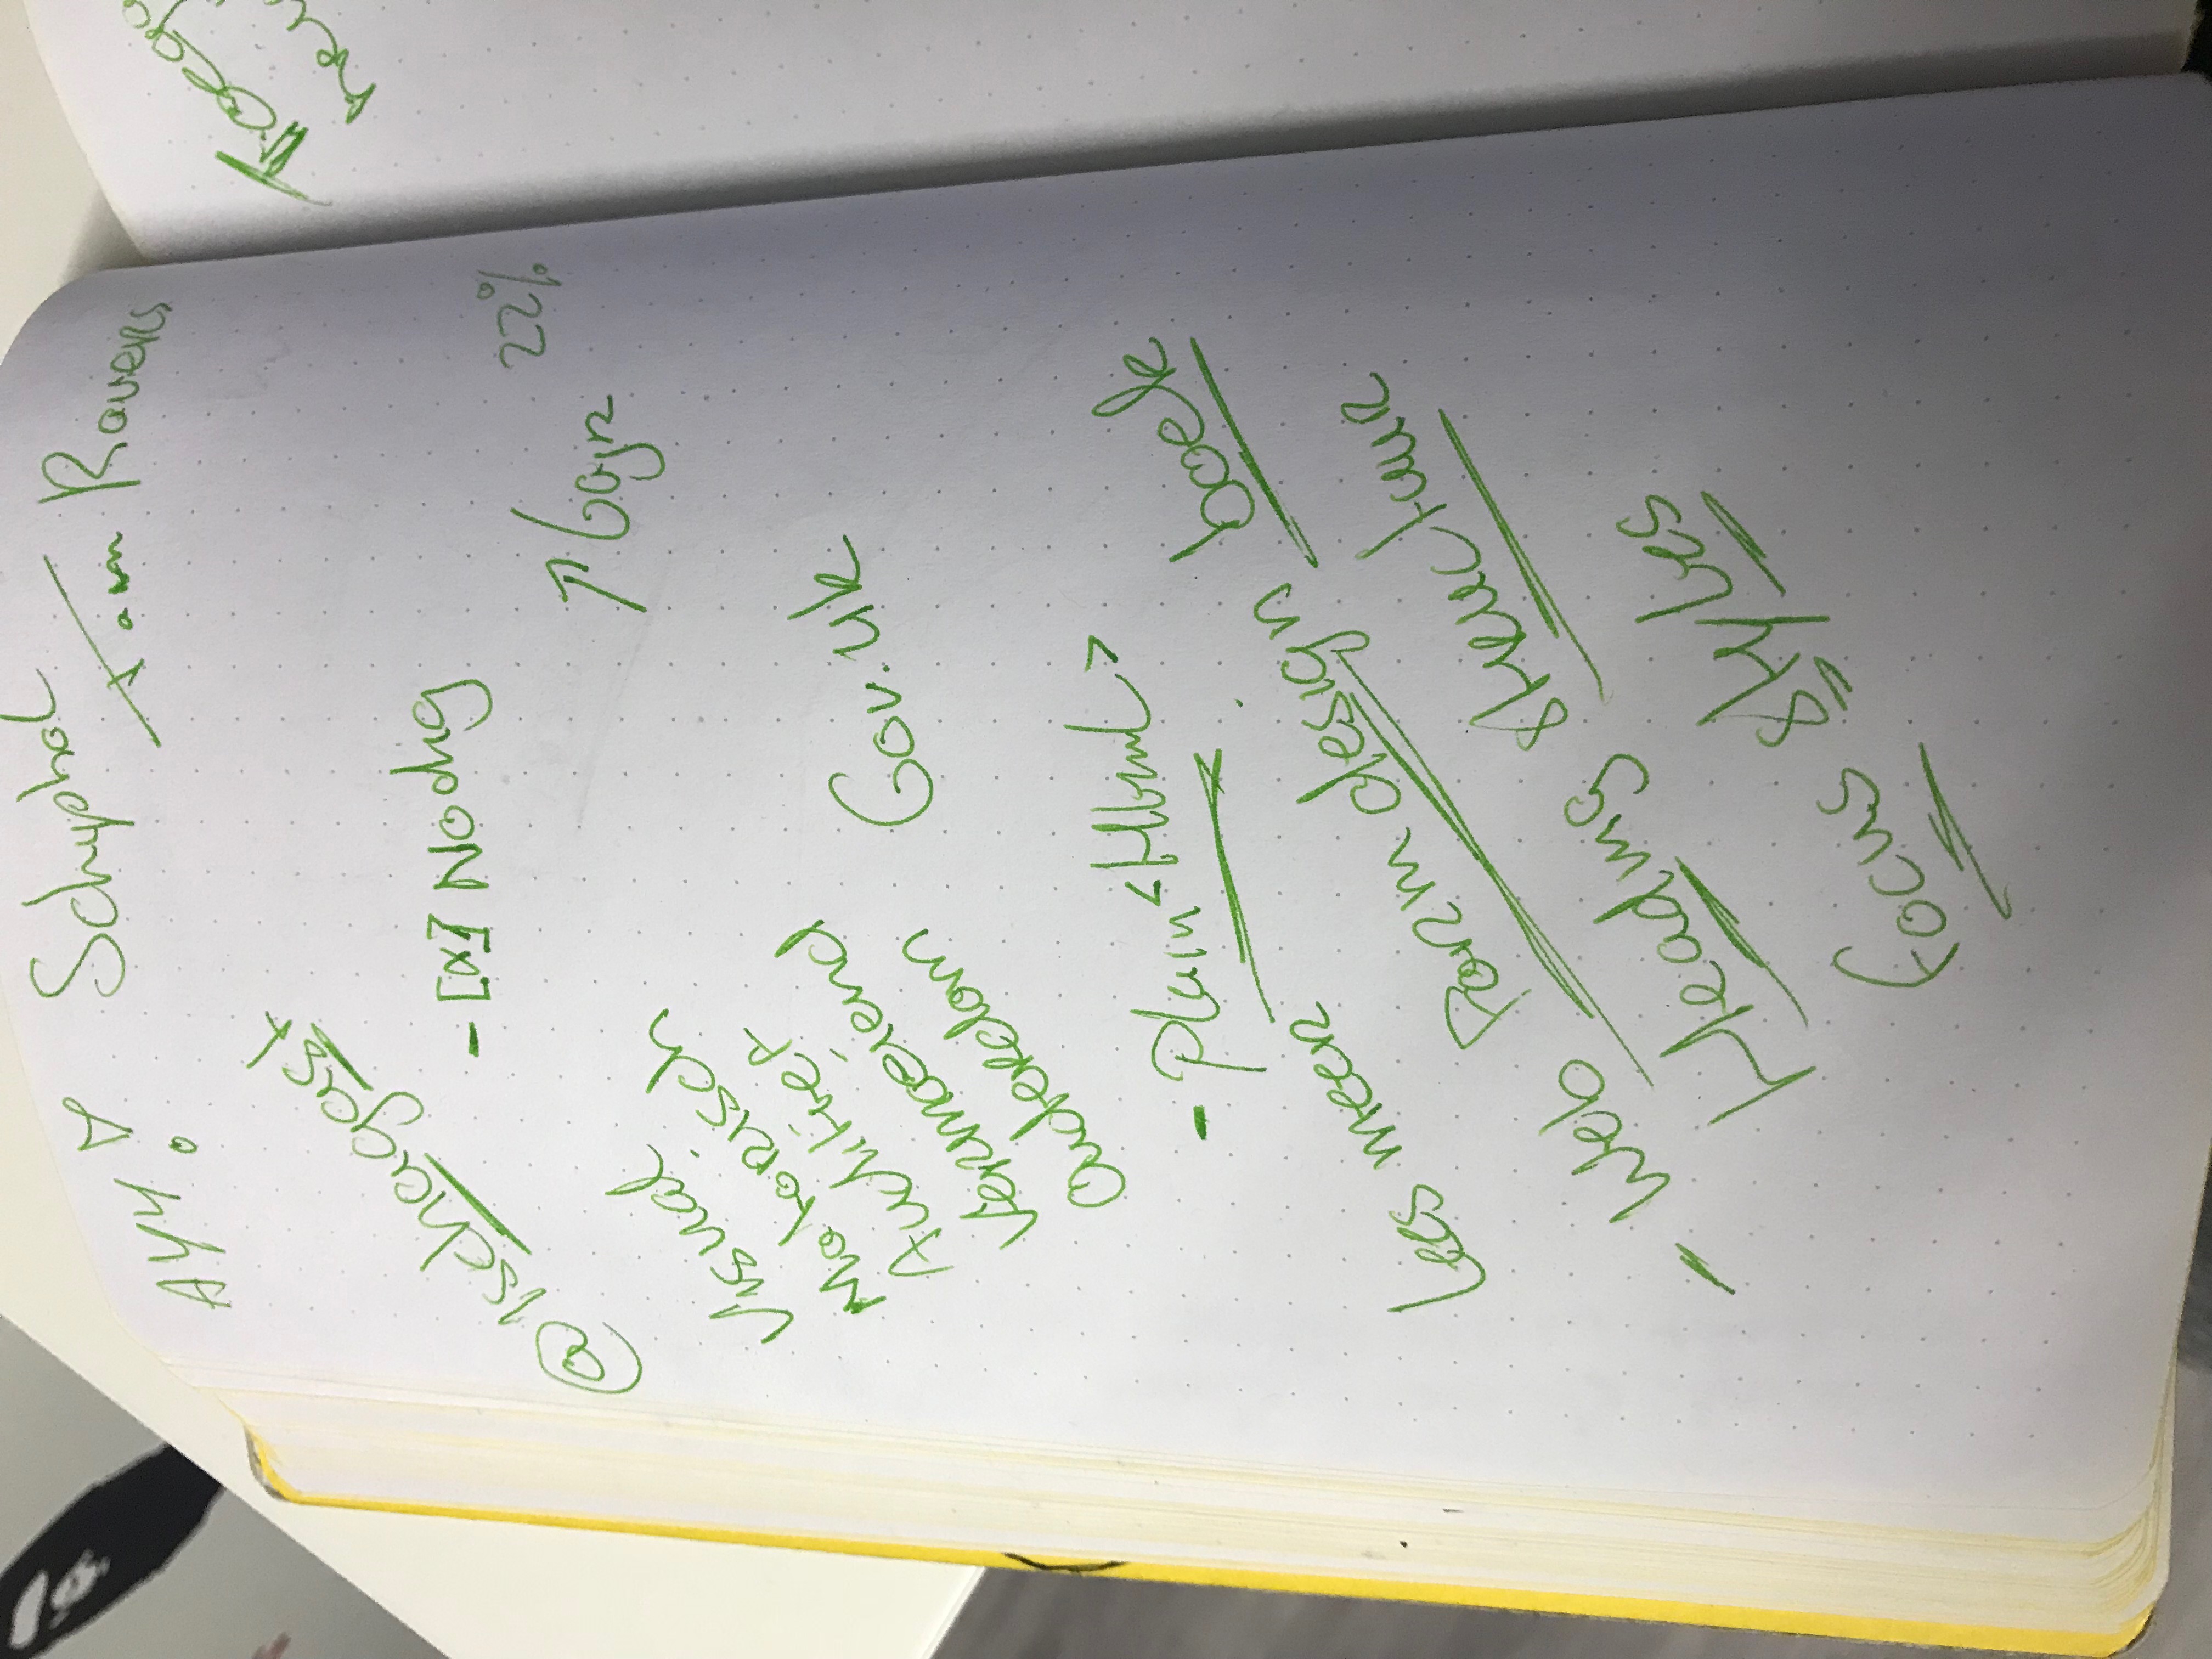 A44!
Schyphol
Ravens
@ischagast
- [x] Nodig
22%
↑ 6ajr
Visual
Motorisch
Auditief
Vermoeiend
Ouderdom
Gov.uk
- Plain <Html>
Lees meer
- Web Form design boek
Heading structuur
Focus styles
Toega